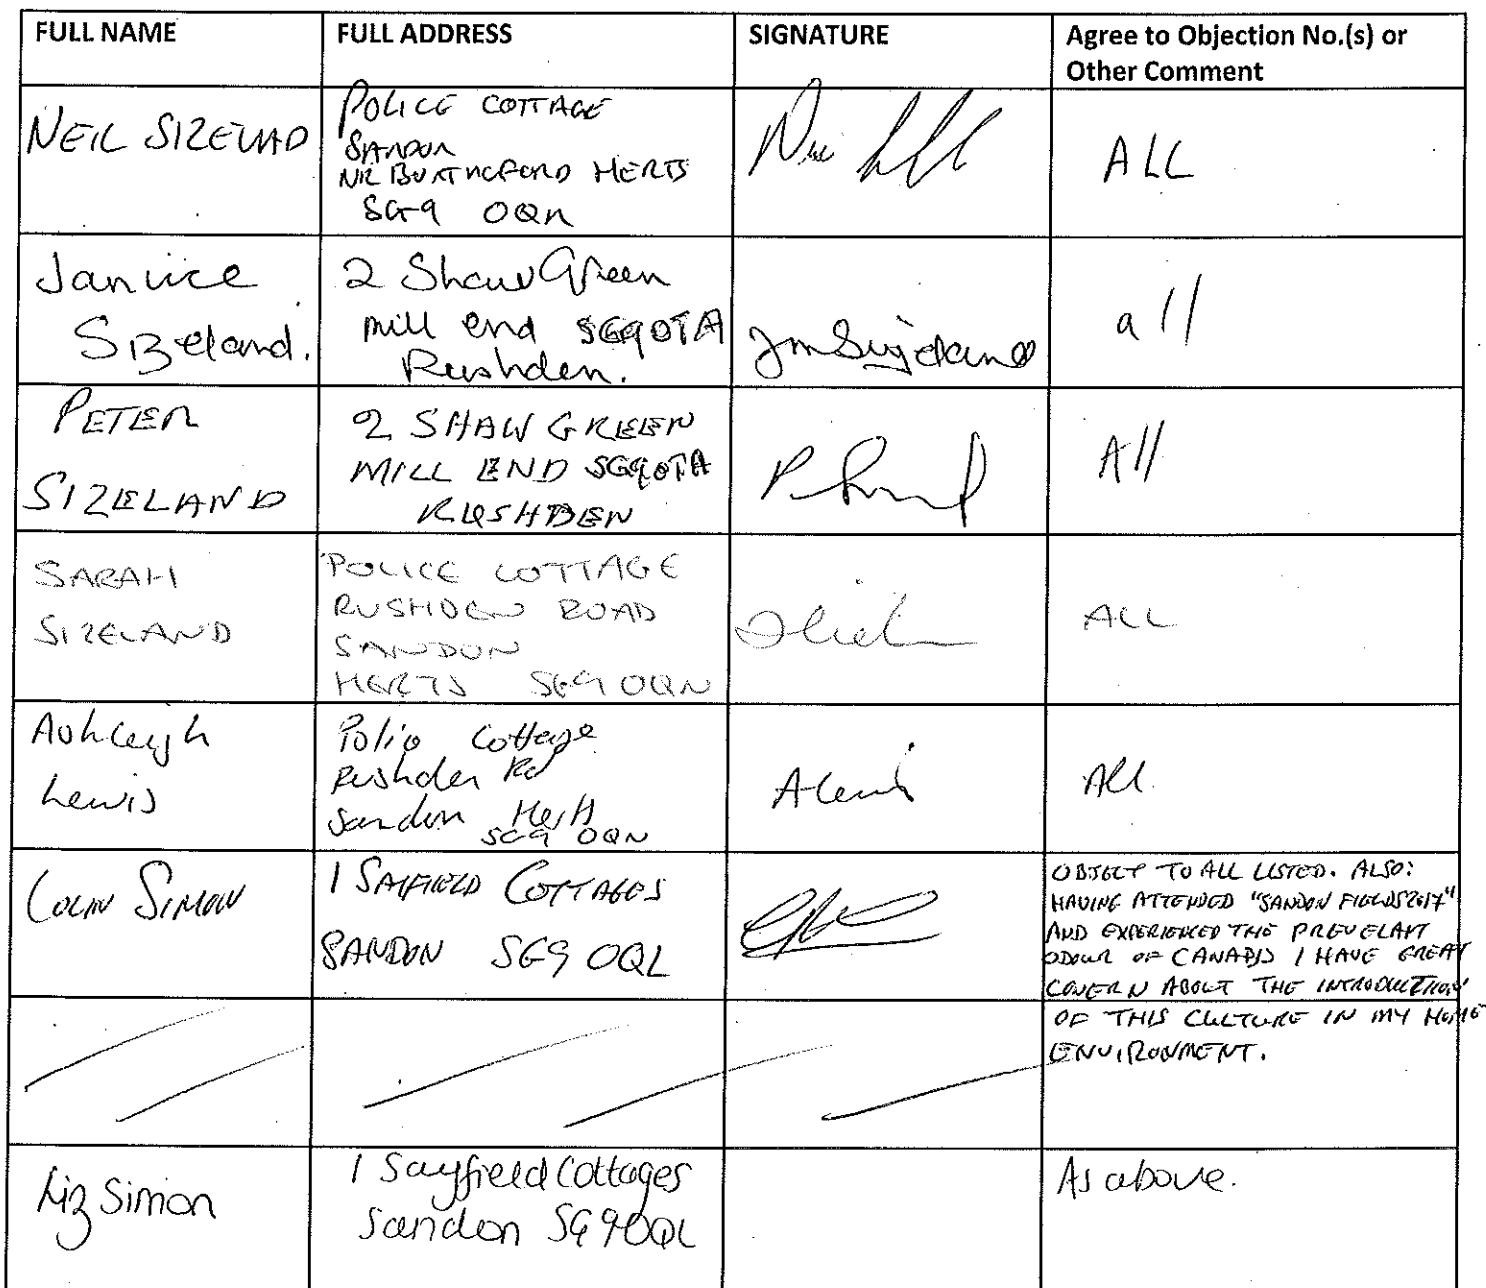 FULL NAME
FULL ADDRESS
SIGNATURE
Agree to Objection No.(s) or
Other Comment
NEIL SIZELAND
POLICE COTTAGE
SANDON
NR BUNTINGFORD HERTS
SG9 0QN
ALL
Janice
Sizeland.
2 Shaw Green
Mill end SG90TA
Rushden.
JmSizeland
all
PETER
SIZELAND
2 SHAW GREEN
MILL END SG90TA
RUSHDEN
All
SARAH
SIZELAND
POLICE COTTAGE
RUSHDEN ROAD
SANDON
HERTS SG9 0QN
ALL
Ashleigh
Lewis
Police Cottage
Rushden Rd
Sandon Herts
SG9 0QN
A Lewis
All
COLIN SIMON
1 SAYFIELD COTTAGES
SANDON SG9 0QL
OBJECT TO ALL LISTED. ALSO:
HAVING ATTENDED "SANDON FIELDS 2017"
AND EXPERIENCED THE PREVELANT
ODOUR OF CANABIS I HAVE GREAT
CONCERN ABOUT THE INTRODUCTION
OF THIS CULTURE IN MY HOME
ENVIRONMENT.
Liz Simon
1 Sayfield Cottages
Sandon SG9 0QL
As above.